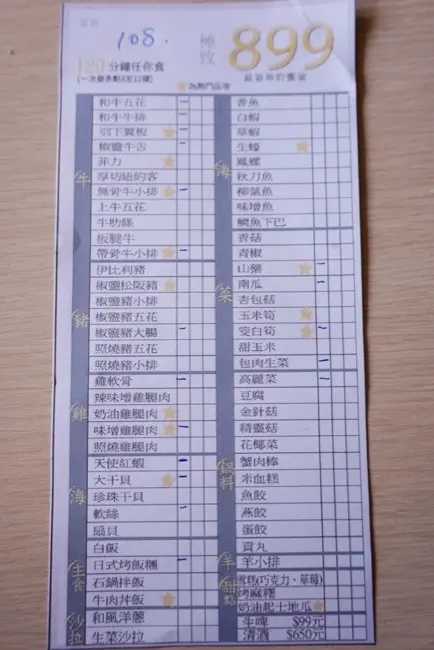 108.
極致
899
120分鐘任你食
(一次最多點8至12樣)
最頂級的饗宴
★為熱門品項
牛
和牛五花
和牛牛排
羽下翼板
椒鹽牛舌
菲力
厚切紐約客
無骨牛小排
上牛五花
牛肋條
板腱牛
帶骨牛小排
豬
伊比利豬
椒鹽松阪豬
椒鹽豬小排
椒鹽豬五花
椒鹽豬大腸
照燒豬五花
照燒豬小排
雞
雞軟骨
辣味增雞腿肉
奶油雞腿肉
味增雞腿肉
照燒雞腿肉
海
天使紅蝦
大干貝
珍珠干貝
軟絲
扇貝
主食
白飯
日式烤飯糰
石鍋拌飯
牛肉丼飯
沙拉
和風洋蔥
生菜沙拉
海
香魚
白蝦
草蝦
生蠔
鳳螺
秋刀魚
柳葉魚
味增魚
鯛魚下巴
菜
香菇
青椒
山藥
南瓜
杏包菇
玉米筍
茭白筍
甜玉米
包肉生菜
高麗菜
豆腐
金針菇
精靈菇
花椰菜
鍋料
蟹肉棒
米血糕
魚餃
燕餃
蛋餃
貢丸
羊
羊小排
甜點
雪糕(巧克力、草莓)
烤麻糬
奶油起士地瓜
生啤 $99元
清酒 $650元